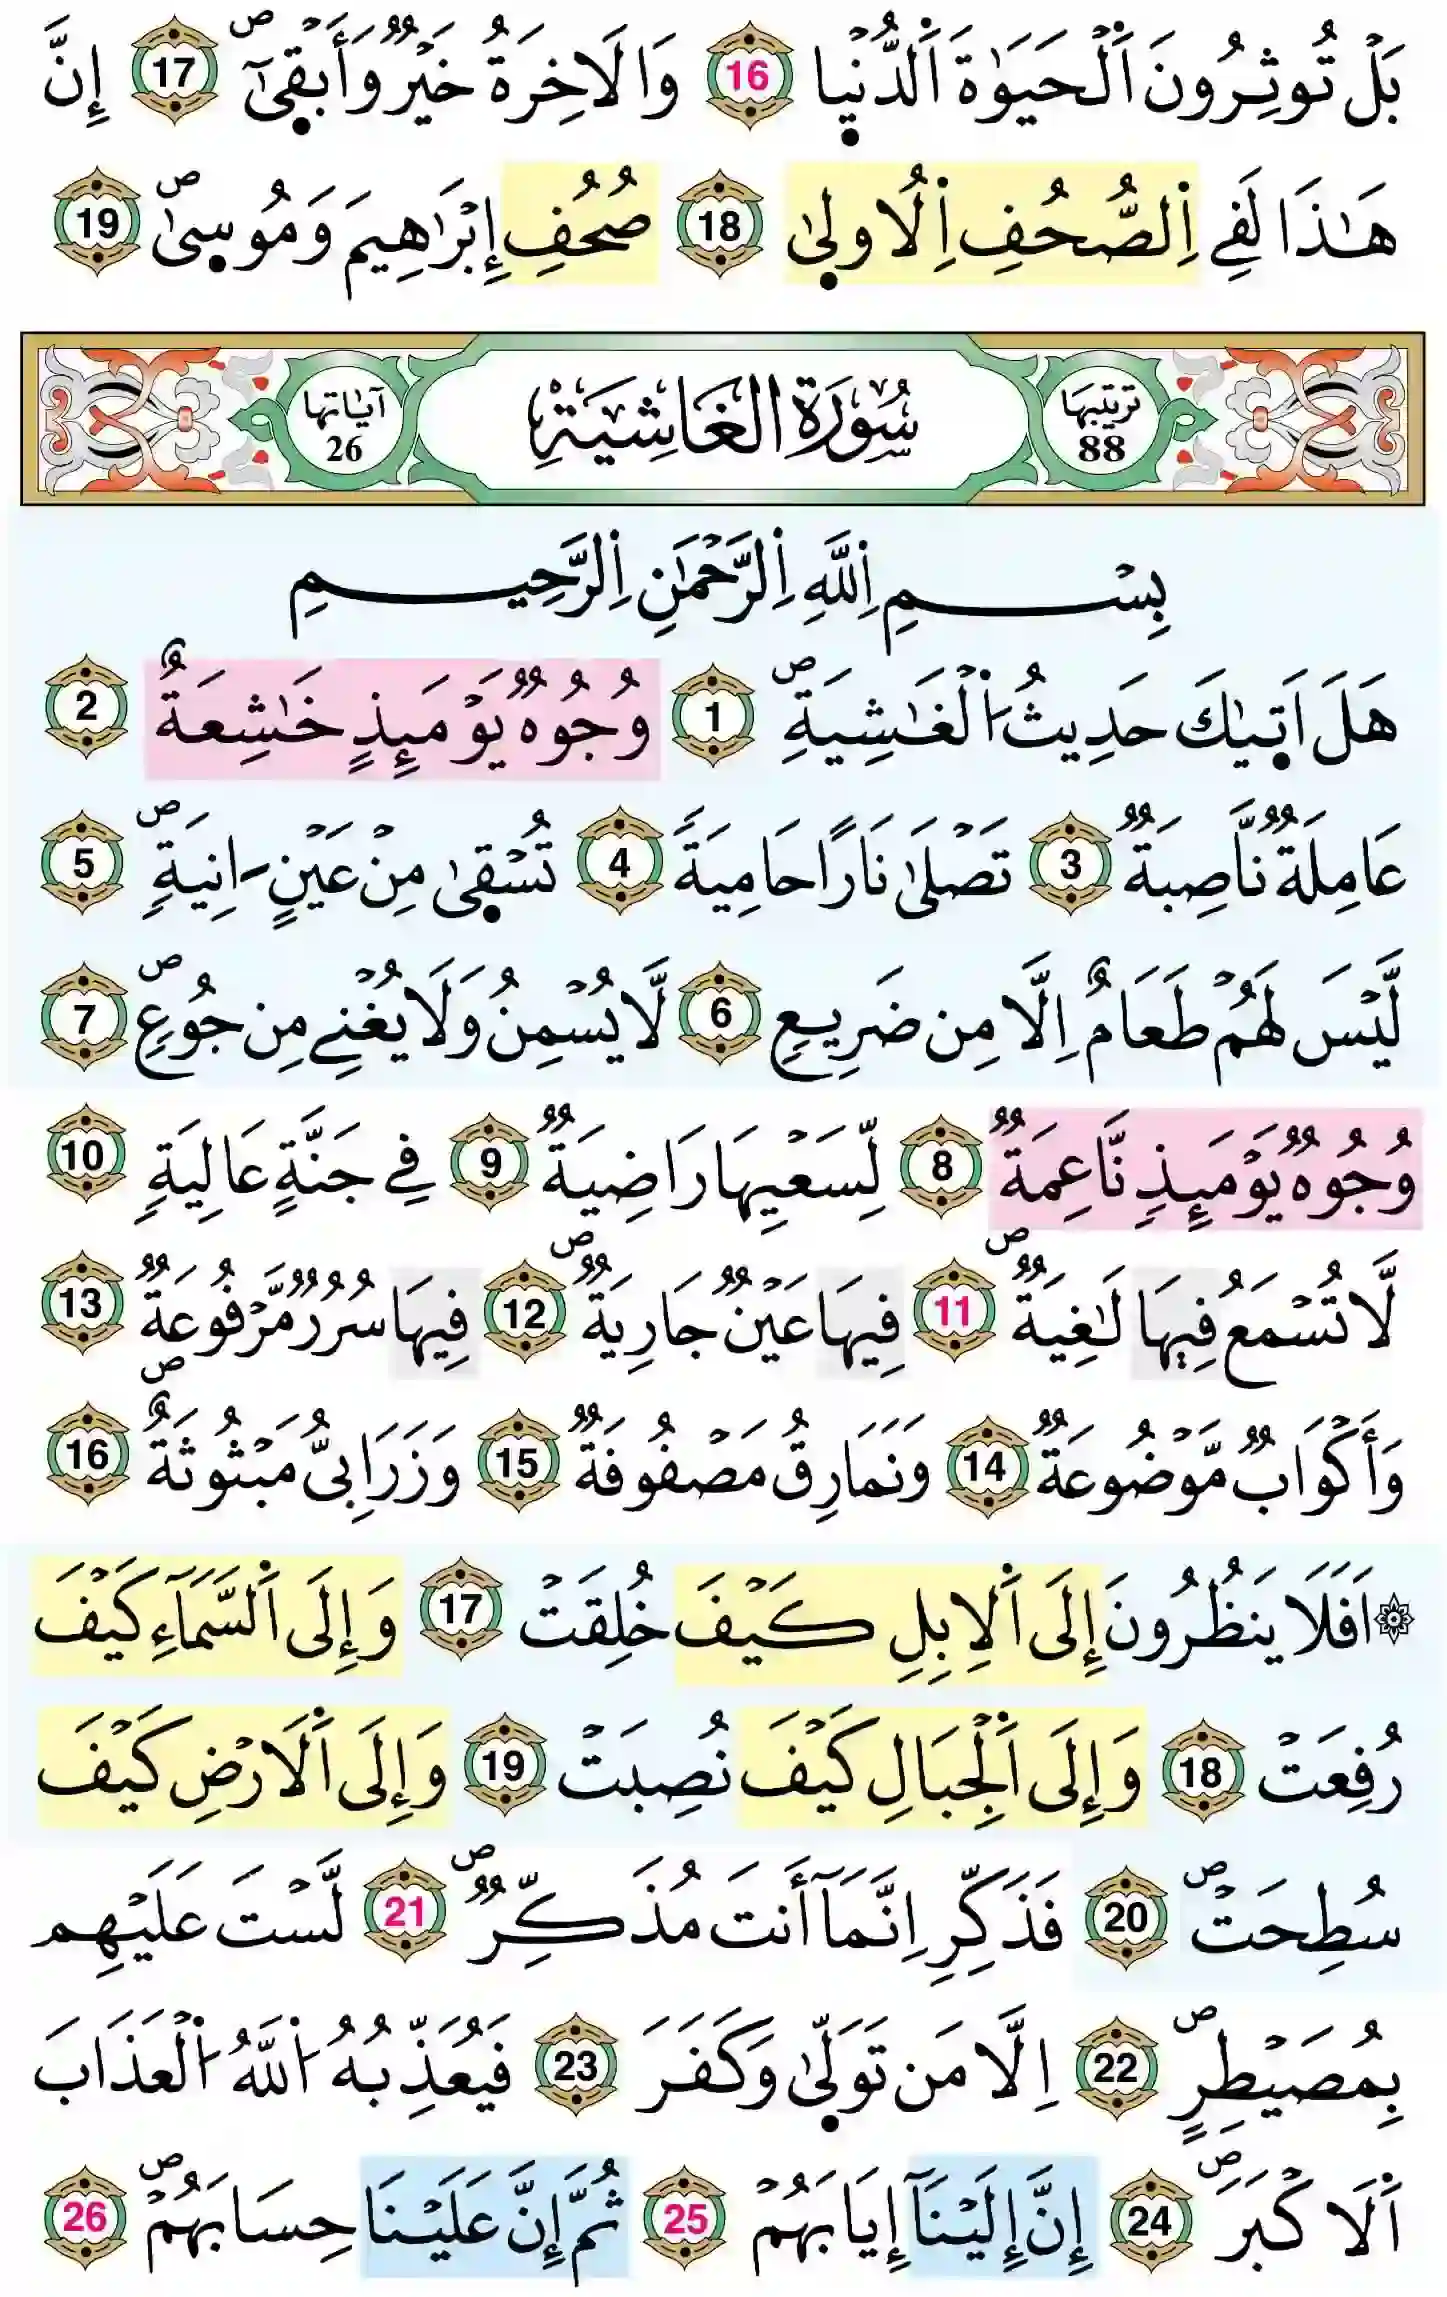 بَلْ تُوثِرُونَ اَ۬لْحَيَوٰةَ اَ۬لدُّنْي۪ا 16 وَالَاخِرَةُ خَيْرٞ وَأَبْق۪ىٰٓۖ 17 إِنَّ
هَٰذَا لَفِے اِ۬لصُّحُفِ اِ۬لُاول۪ىٰ 18 صُحُفِ إِبْرَٰهِيمَ وَمُوس۪ىٰۖ 19
ترتيبها 88 سُورَةُ الْغَاشِيَةِ آياتها 26
بِسْمِ اِ۬للَّهِ اِ۬لرَّحْمَٰنِ اِ۬لرَّحِيمِ
هَلَ اَت۪يٰكَ حَدِيثُ اُ۬لْغَٰشِيَةِۖ 1 وُجُوهٞ يَوْمَئِذٍ خَٰشِعَةٌ 2
عَامِلَةٞ نَّاصِبَةٞ 3 تَصْلَىٰ نَاراً حَامِيَةٗ 4 تُسْق۪ىٰ مِنْ عَيْنٍ اٰنِيَةٖۖ 5
لَّيْسَ لَهُمْ طَعَامٌ اِلَّا مِن ضَرِيعٖ 6 لَّا يُسْمِنُ وَلَا يُغْنِے مِن جُوعٖۖ 7
وُجُوهٞ يَوْمَئِذٖ نَّاعِمَةٞ 8 لِّسَعْيِهَا رَاضِيَةٞ 9 فِے جَنَّةٍ عَالِيَةٖ 10
لَّا تُسْمَعُ فِيهَا لَٰغِيَةٞۖ 11 فِيهَا عَيْنٞ جَارِيَةٞۖ 12 فِيهَا سُرُرٞ مَّرْفُوعَةٞ 13
وَأَكْوَابٞ مَّوْضُوعَةٞ 14 وَنَمَارِقُ مَصْفُوفَةٞ 15 وَزَرَابِيُّ مَبْثُوثَةٌۖ 16
۞ اَفَلَا يَنظُرُونَ إِلَى اَ۬لِابِلِ كَيْفَ خُلِقَتْ 17 وَإِلَى اَ۬لسَّمَآءِ كَيْفَ
رُفِعَتْ 18 وَإِلَى اَ۬لْجِبَالِ كَيْفَ نُصِبَتْ 19 وَإِلَى اَ۬لَارْضِ كَيْفَ
سُطِحَتْۖ 20 فَذَكِّرِ اِنَّمَآ أَنتَ مُذَكِّرٞۖ 21 لَّسْتَ عَلَيْهِم
بِمُصَيْطِرٍۖ 22 اِلَّا مَن تَوَلّ۪ىٰ وَكَفَرَ 23 فَيُعَذِّبُهُ اُ۬للَّهُ اُ۬لْعَذَابَ
اَ۬لَاكْبَرَۖ 24 إِنَّ إِلَيْنَآ إِيَابَهُمْ 25 ثُمَّ إِنَّ عَلَيْنَا حِسَابَهُمْۖ 26